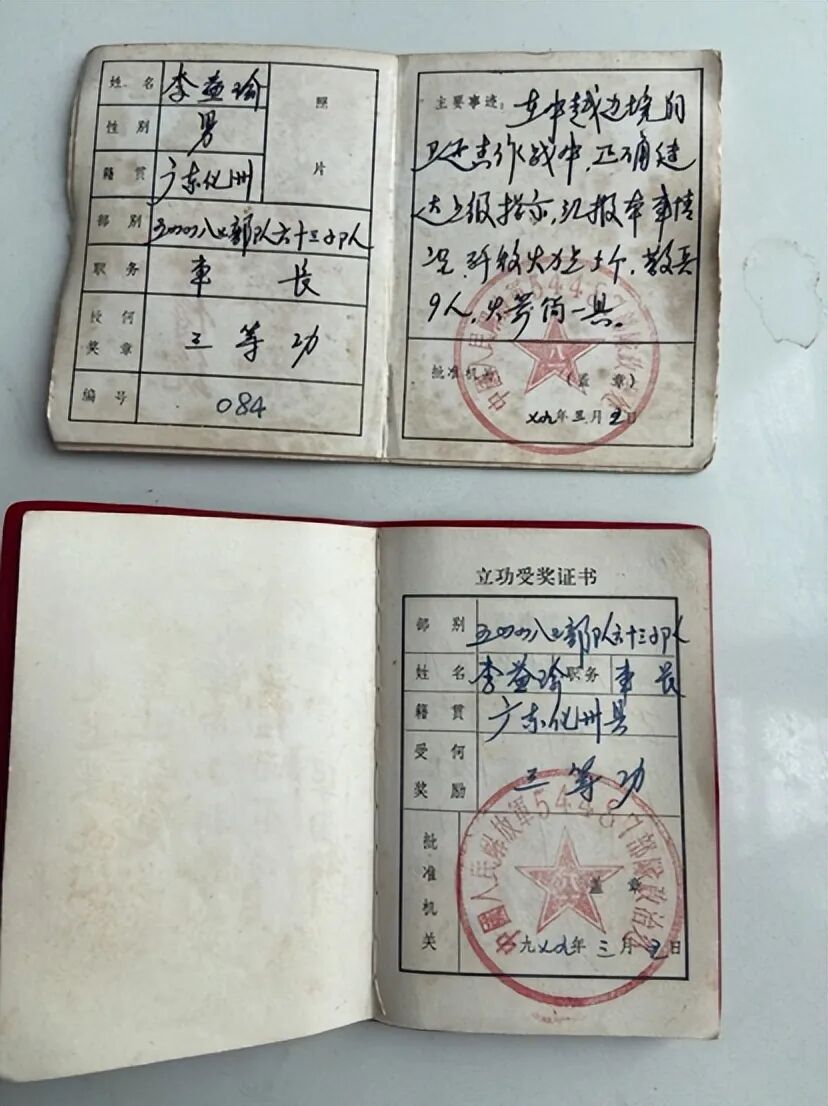 姓名 李益瑜
照片
性别 男
籍贯 广东化州
部别 五四四八七部队六十三分队
职务 车长
授何奖章 三等功
编号 084
主要事迹：在中越边境的
卫还击作战中，正确传
达上级指示，汇报本车情
况，歼敌火力点士个，敌兵
9人，火箭筒一具。
批准机关
(盖章)
中國人民解放軍54487部隊政治处
七九年三月五日
立功受奖证书
部别 五四四八七部队六十三分队
姓名 李益瑜 职务 车长
籍贯 广东化州县
受何奖励 三等功
批准机关
盖章
中國人民解放軍54487部隊政治处
一九七九年三月五日